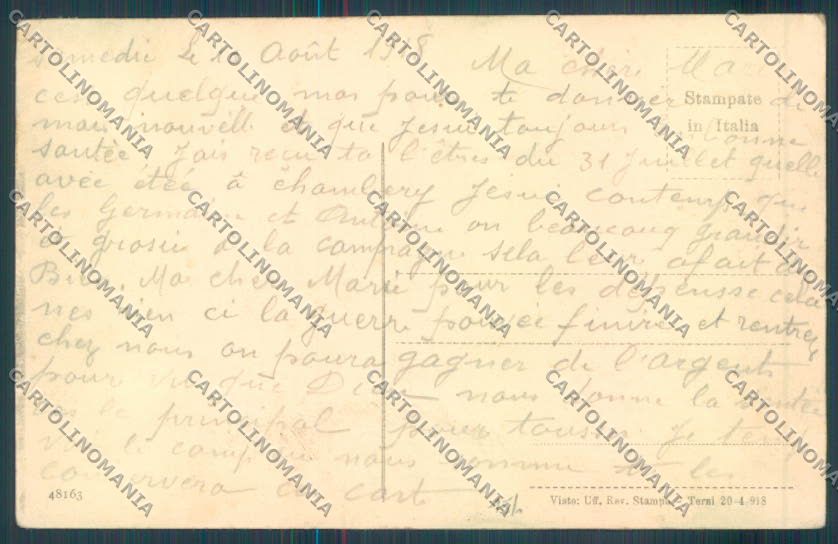 samedi le 1 Août 1918 Ma chère Marie
ces quelque mos pour te donner de
mais nouvelle et que Jesui toujour bonne
santée Jais recu ta l'êtres du 31 Juillet quelle
avée étée à Chambery Jesui contemps que
les Germaine et Antoine on beaucoup grandir
et grosir a la campagne sela leur afait du
Bien. Ma cher Marie pour les dépensse cela
nes rien ci la guerre pouvée finire et rentrer
chez nous on poura gagner de l'argent
pour vu que Dieu nous donne la santée
le principal pour tousse. Je
le nous somme et les
conservera ca cart
Stampato
in Italia
48163
Visto: Uff. Rev. Stampa - Terni 20-4-918
CARTOLINOMANIA